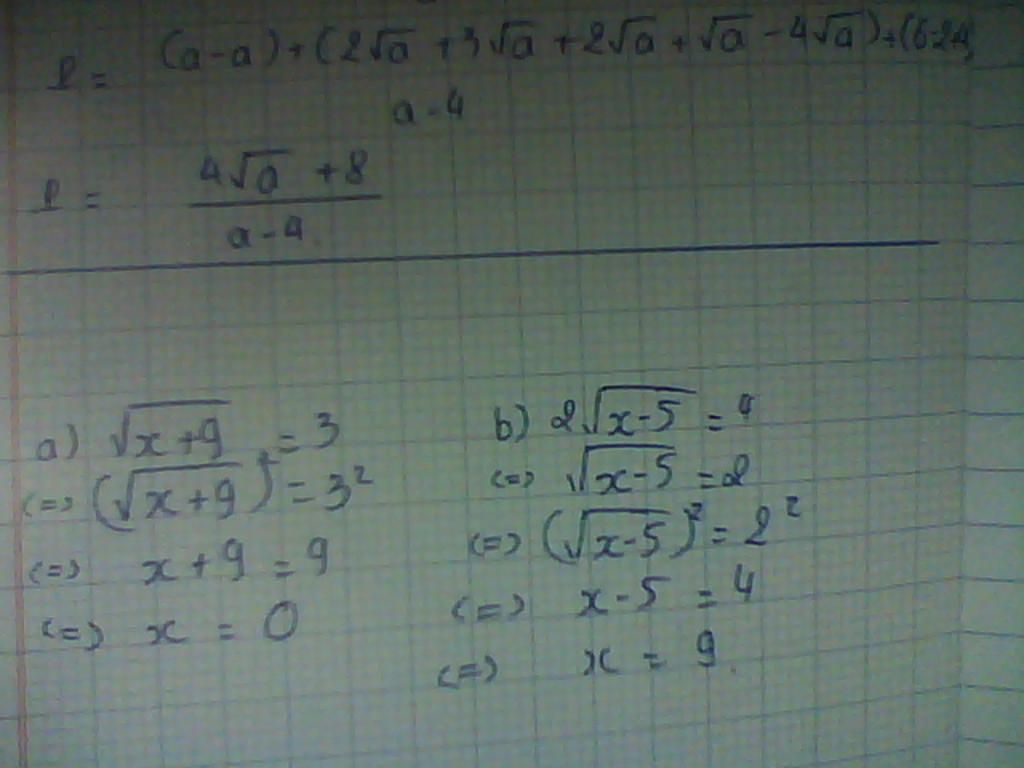 P = (a-a)+(2√a +3√a +2√a +√a -4√a)+(6-2+4) / a-4
P = 4√a +8 / a-4.
a) √x+9 = 3
<=> (√x+9)² = 3²
<=> x+9 = 9
<=> x = 0
b) 2√x-5 = 4
<=> √x-5 = 2
<=> (√x-5)² = 2²
<=> x-5 = 4
<=> x = 9.